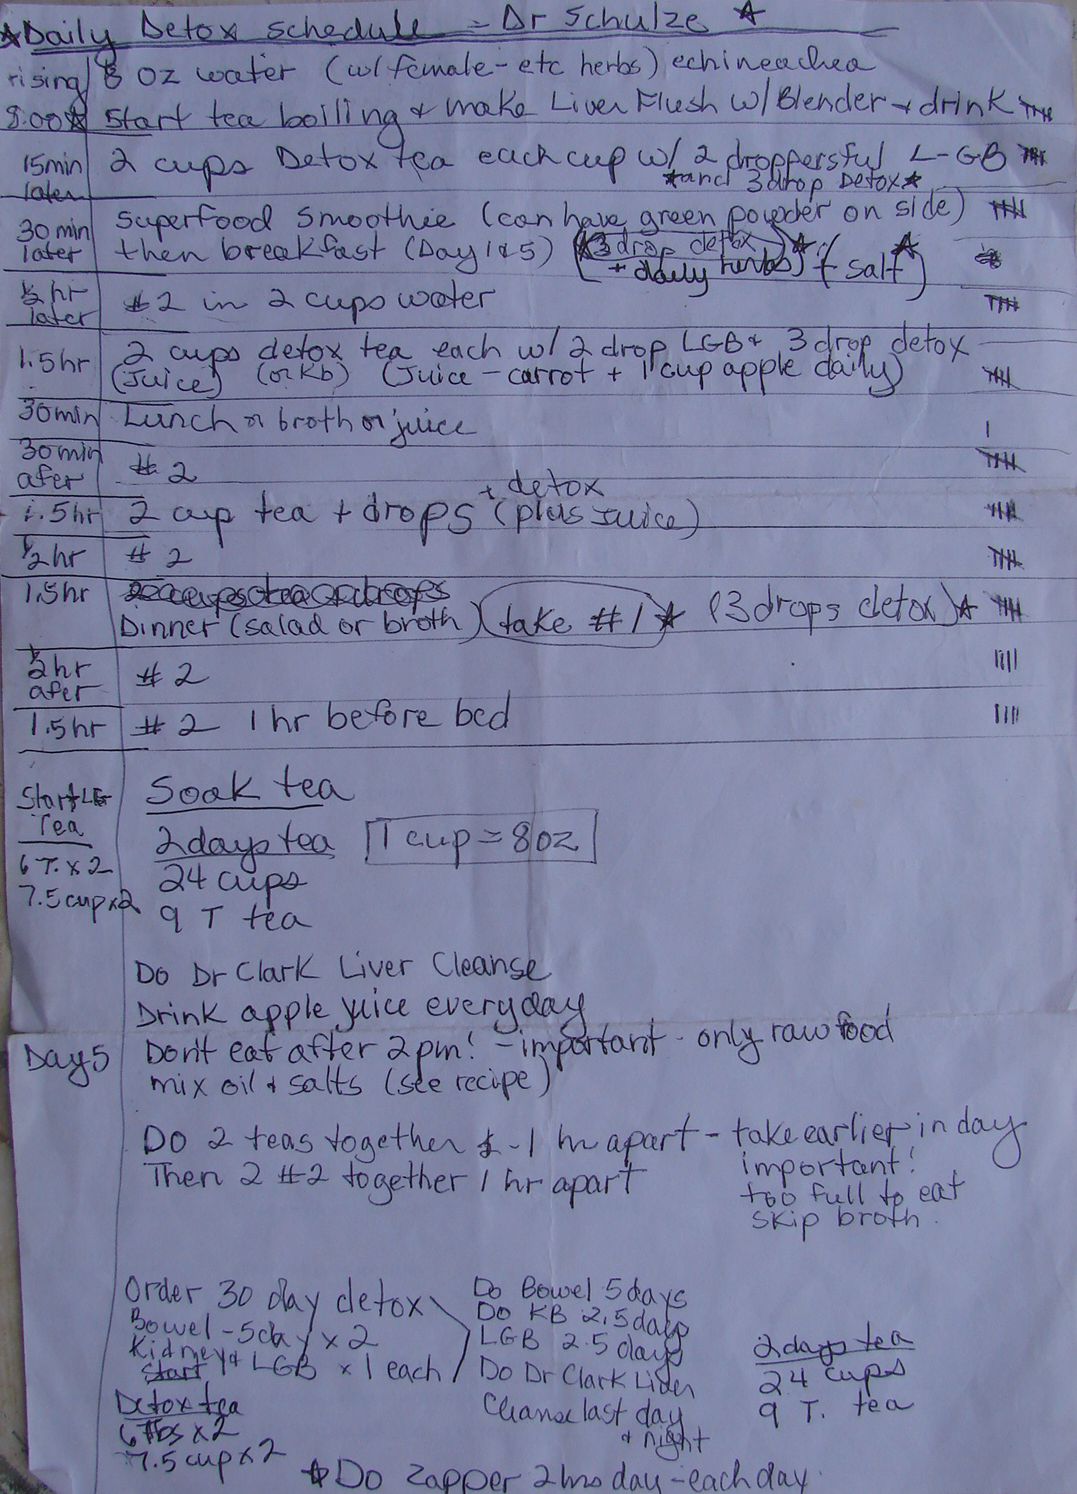 ☆Daily Detox schedule = Dr Schulze ☆
rising/ 8 oz water (w/female-etc herbs) echineachea
8:00☆ Start tea boiling & make Liver Flush w/Blender & drink
15min later 2 cups Detox tea each cup w/ 2 droppersful L-GB
☆and 3drop Detox☆
30min later Superfood Smoothie (can have green powder on side)
then breakfast (Day 1&5) (☆3 drop detox + daily herbs)☆ (salt☆)
½ hr later #2 in 2 cups water
1.5hr 2 cups detox tea each w/ 2 drop LGB & 3 drop detox
(Juice) (or Kb) (Juice - carrot + 1 cup apple daily)
30min Lunch or broth or juice
30min afer #2
1.5hr 2 cup tea + drops + detox (plus Juice)
½hr #2
1.5hr
Dinner (salad or broth) (take #1)☆ (3 drops detox)☆
½hr afer #2
1.5hr #2 1 hr before bed
Start LG Tea
6 T. x 2
7.5 cup x 2
Soak tea
2 days tea 1 cup = 8oz
24 cups
9 T tea
Do Dr Clark Liver Cleanse
Drink apple juice everyday
Day 5 Don't eat after 2pm! - important - only raw food
mix oil & salts (see recipe)
Do 2 teas together - 1 hr apart - take earlier in day
Then 2 #2 together 1 hr apart
important!
too full to eat
skip broth.
Order 30 day detox
Bowel - 5day x 2
Kidney &
Start LGB x 1 each
Detox tea
6 Tbs x 2
7.5 cup x 2
Do Bowel 5 days
Do KB 2.5 days
LGB 2.5 days
Do Dr Clark Liver
Cleanse last day
& night
2 days tea
24 cups
9 T. tea
☆Do Zapper 2 hrs day - each day